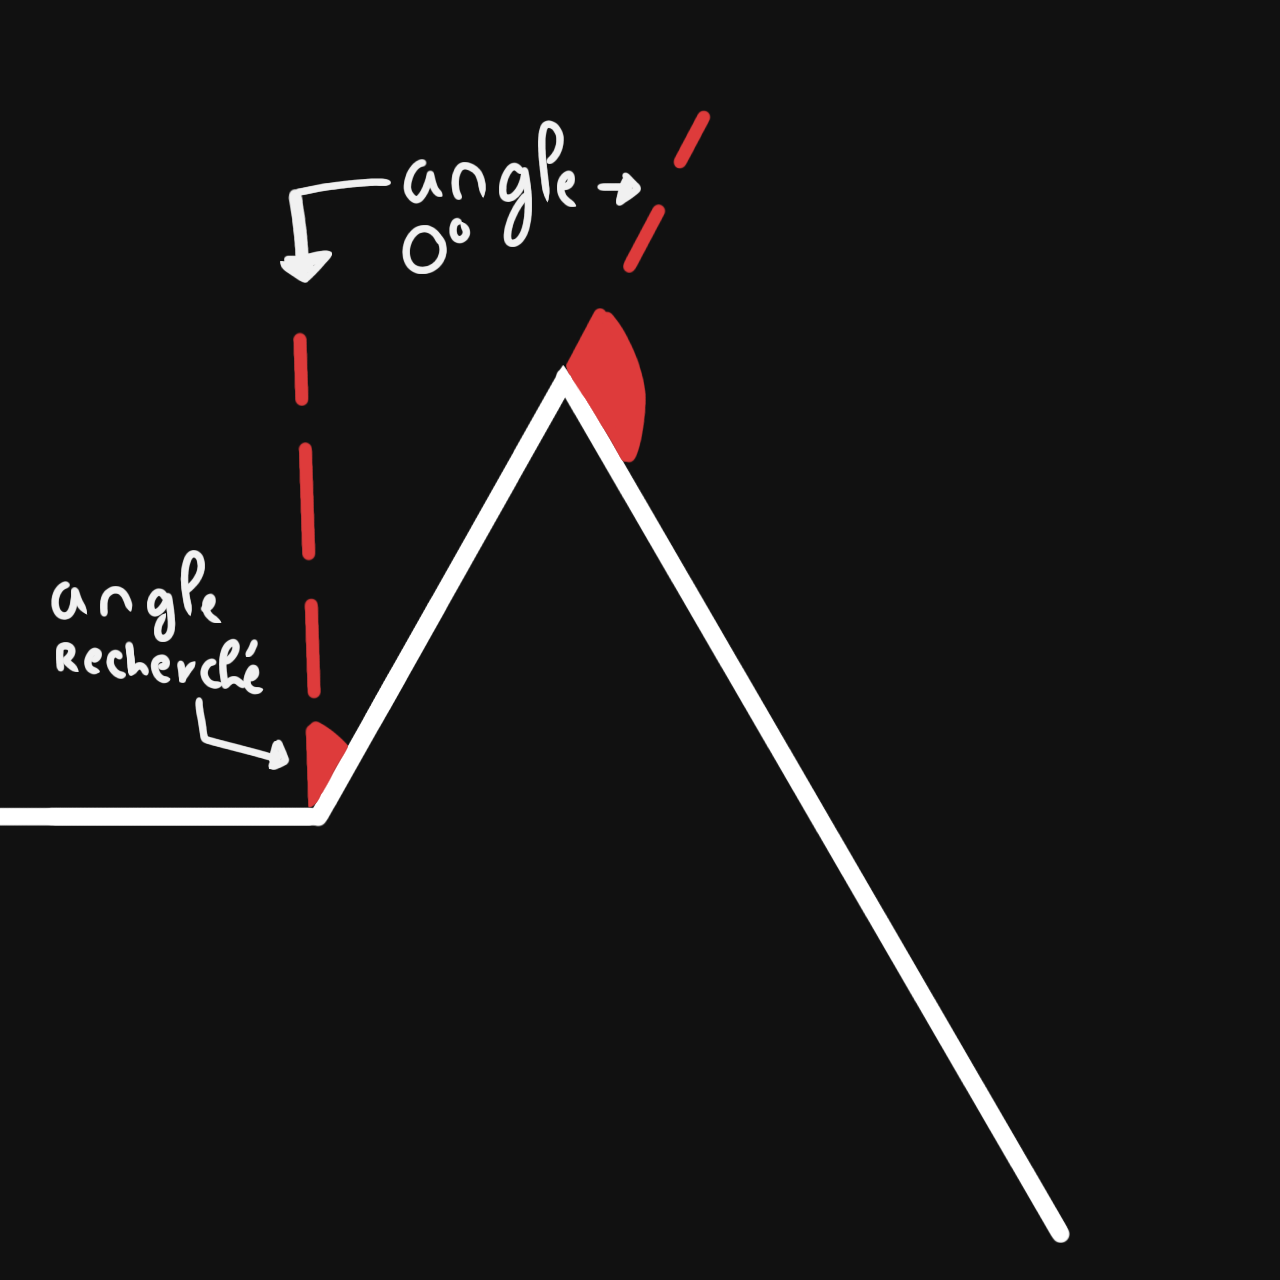 angle
0°
angle
Recherché